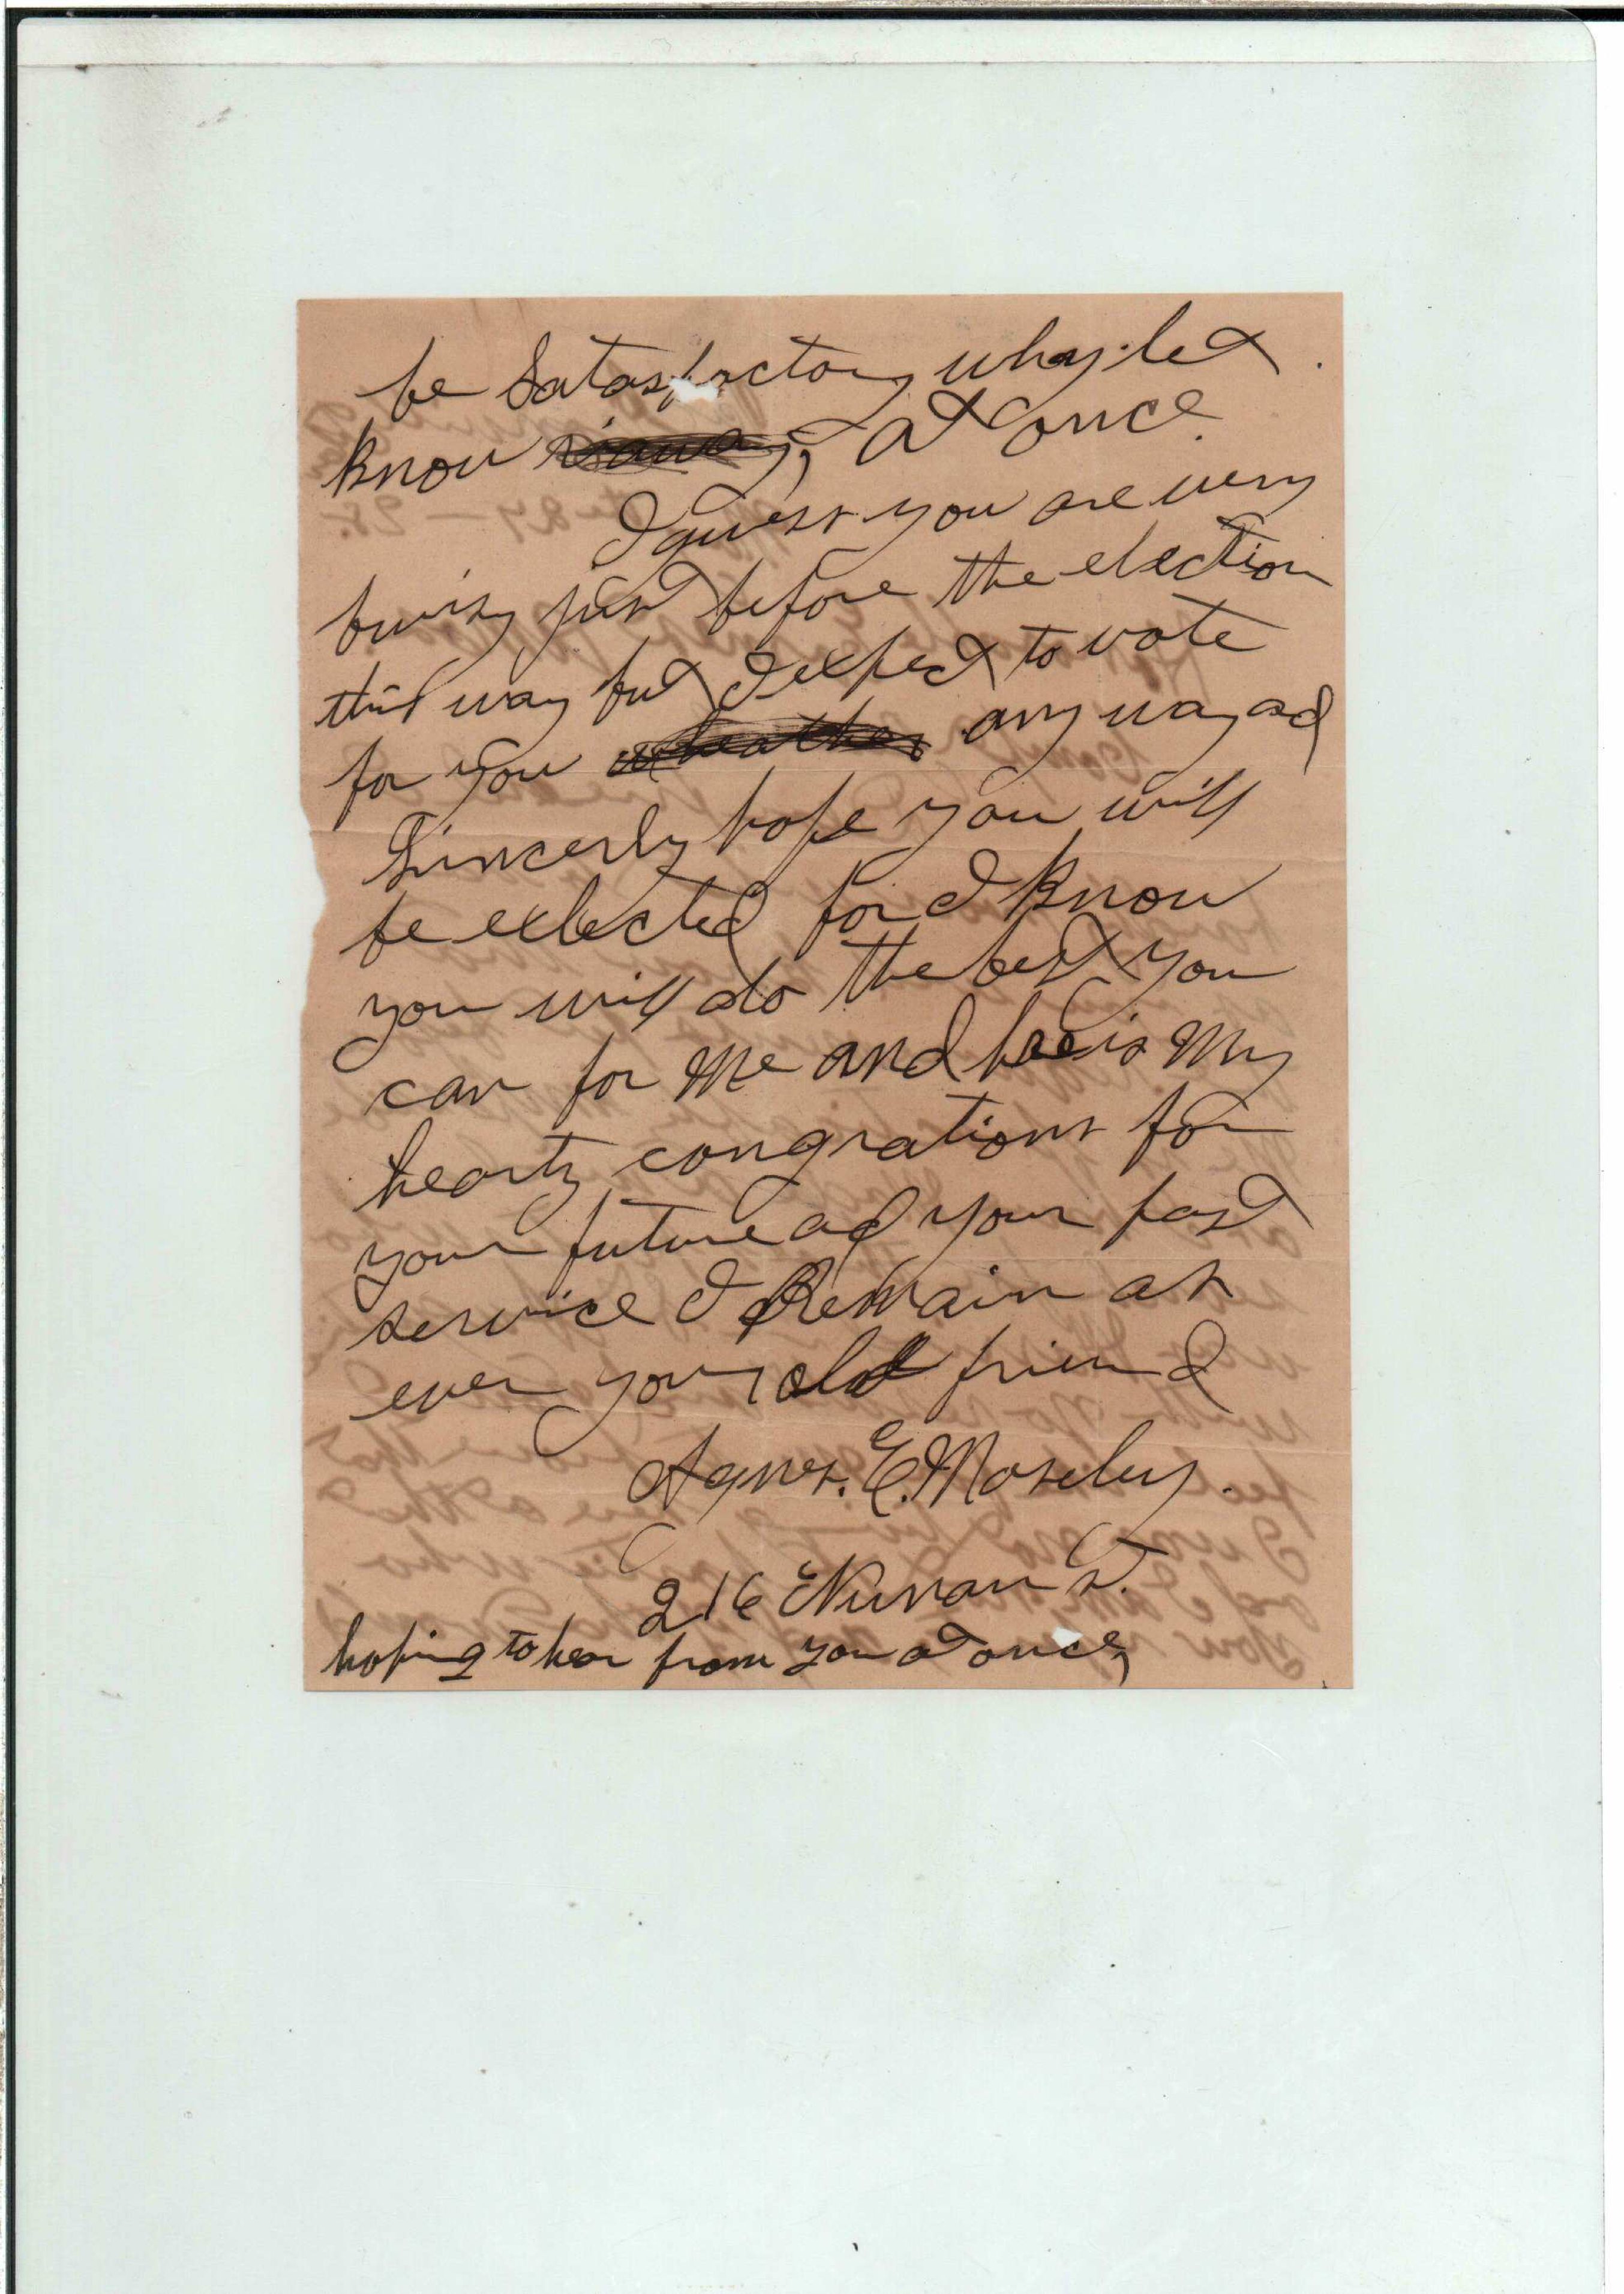 be Satasfactory why let
know at once.
I guess you are very
buisy just before the election
this way but I expect to vote
for you any way ad
Sincerly hope you will
be exlected for I know
you will do the best you
can for me and here is my
hearty congrations for
your future ad your past
service I Remain as
ever your old friend
Agnes. E. Moseley.
216 E Nunan St.
hoping to hear from you at once,